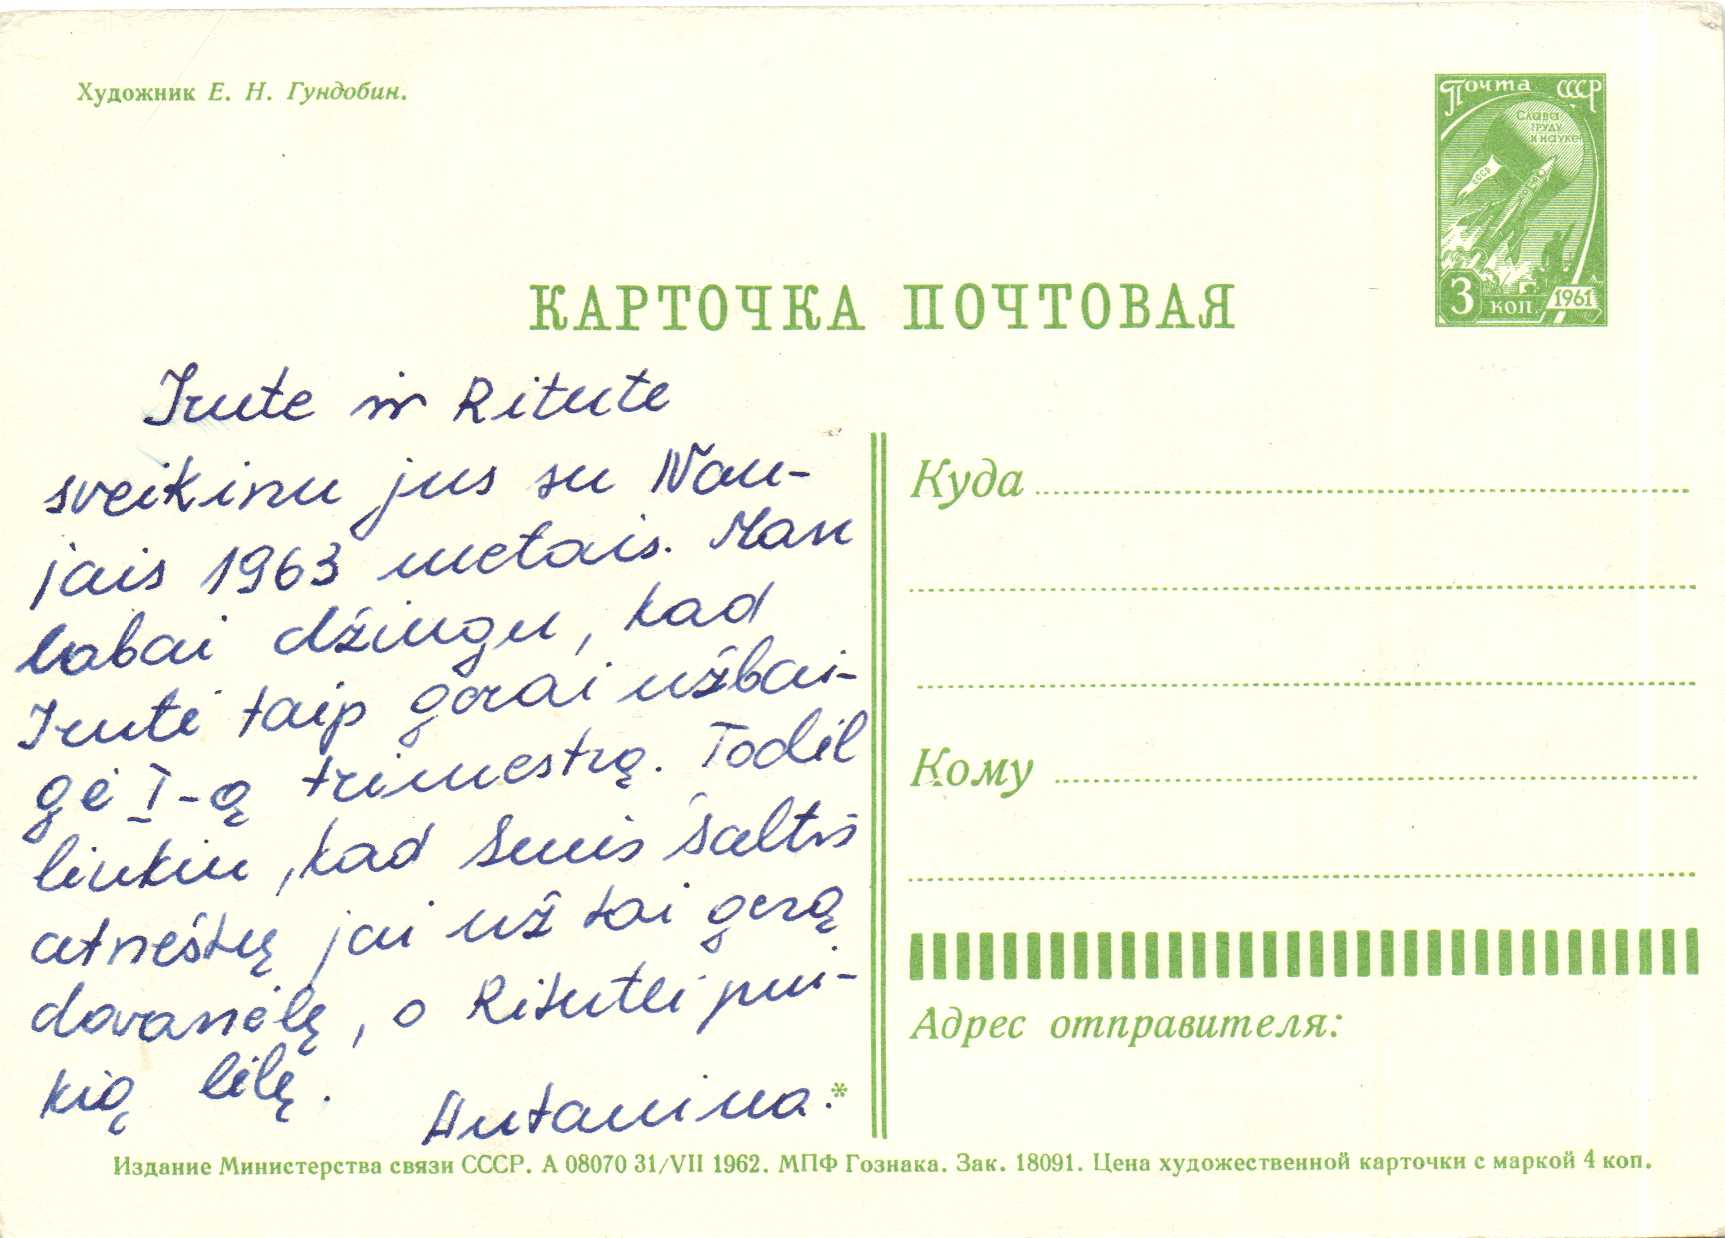 Художник Е. Н. Гундобин.
Почта СССР
Слава
труду
и науке
СССР
3 коп. 1961
КАРТОЧКА ПОЧТОВАЯ
Irute ir Ritute
sveikinu jus su Nau-
jais 1963 metais. Man
labai džiugu, kad
Irutė taip gerai užbai-
gė I-ą trimestrą. Todėl
linkiu, kad Senis šaltis
atneštų jai už tai gerą
dovanėlę, o Ritutei pui-
kią lėlę.
Antanina.*
Куда
Кому
Адрес отправителя:
Издание Министерства связи СССР. А 08070 31/VII 1962. МПФ Гознака. Зак. 18091. Цена художественной карточки с маркой 4 коп.